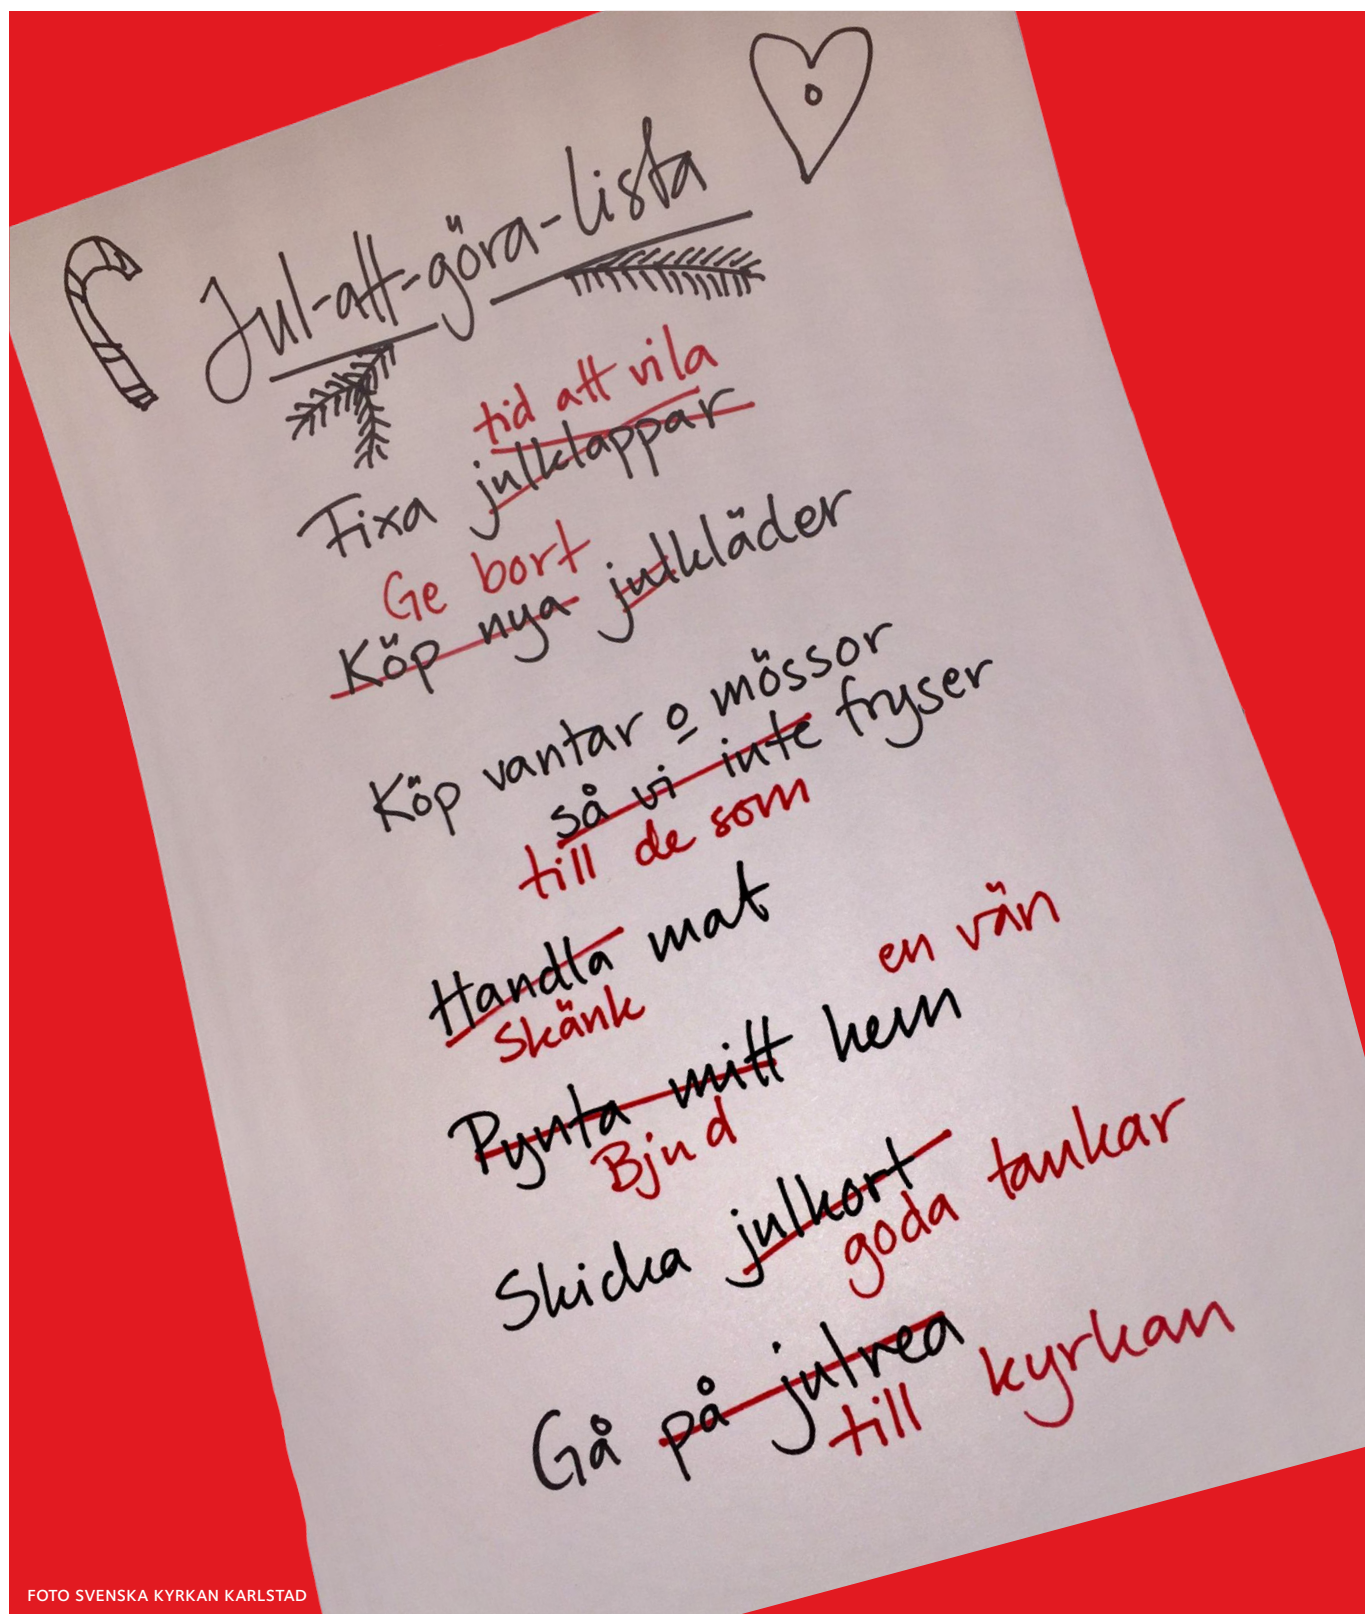 Jul-att-göra-lista
tid att vila
Fixa julklappar
Ge bort
Köp nya julkläder
Köp vantar o mössor
så vi inte fryser
till de som
Handla mat
Skänk
en vän
Pynta mitt hem
Bjud
Skicka julkort
goda tankar
Gå på julrea
till kyrkan
FOTO SVENSKA KYRKAN KARLSTAD